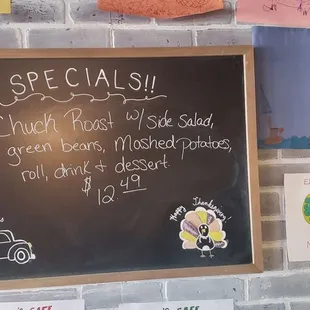 SPECIALS!!
Chuck Roast w/ Side Salad,
green beans, Moshed Potatoes,
roll, drink & dessert.
$12.49
Happy Thanksgiving!